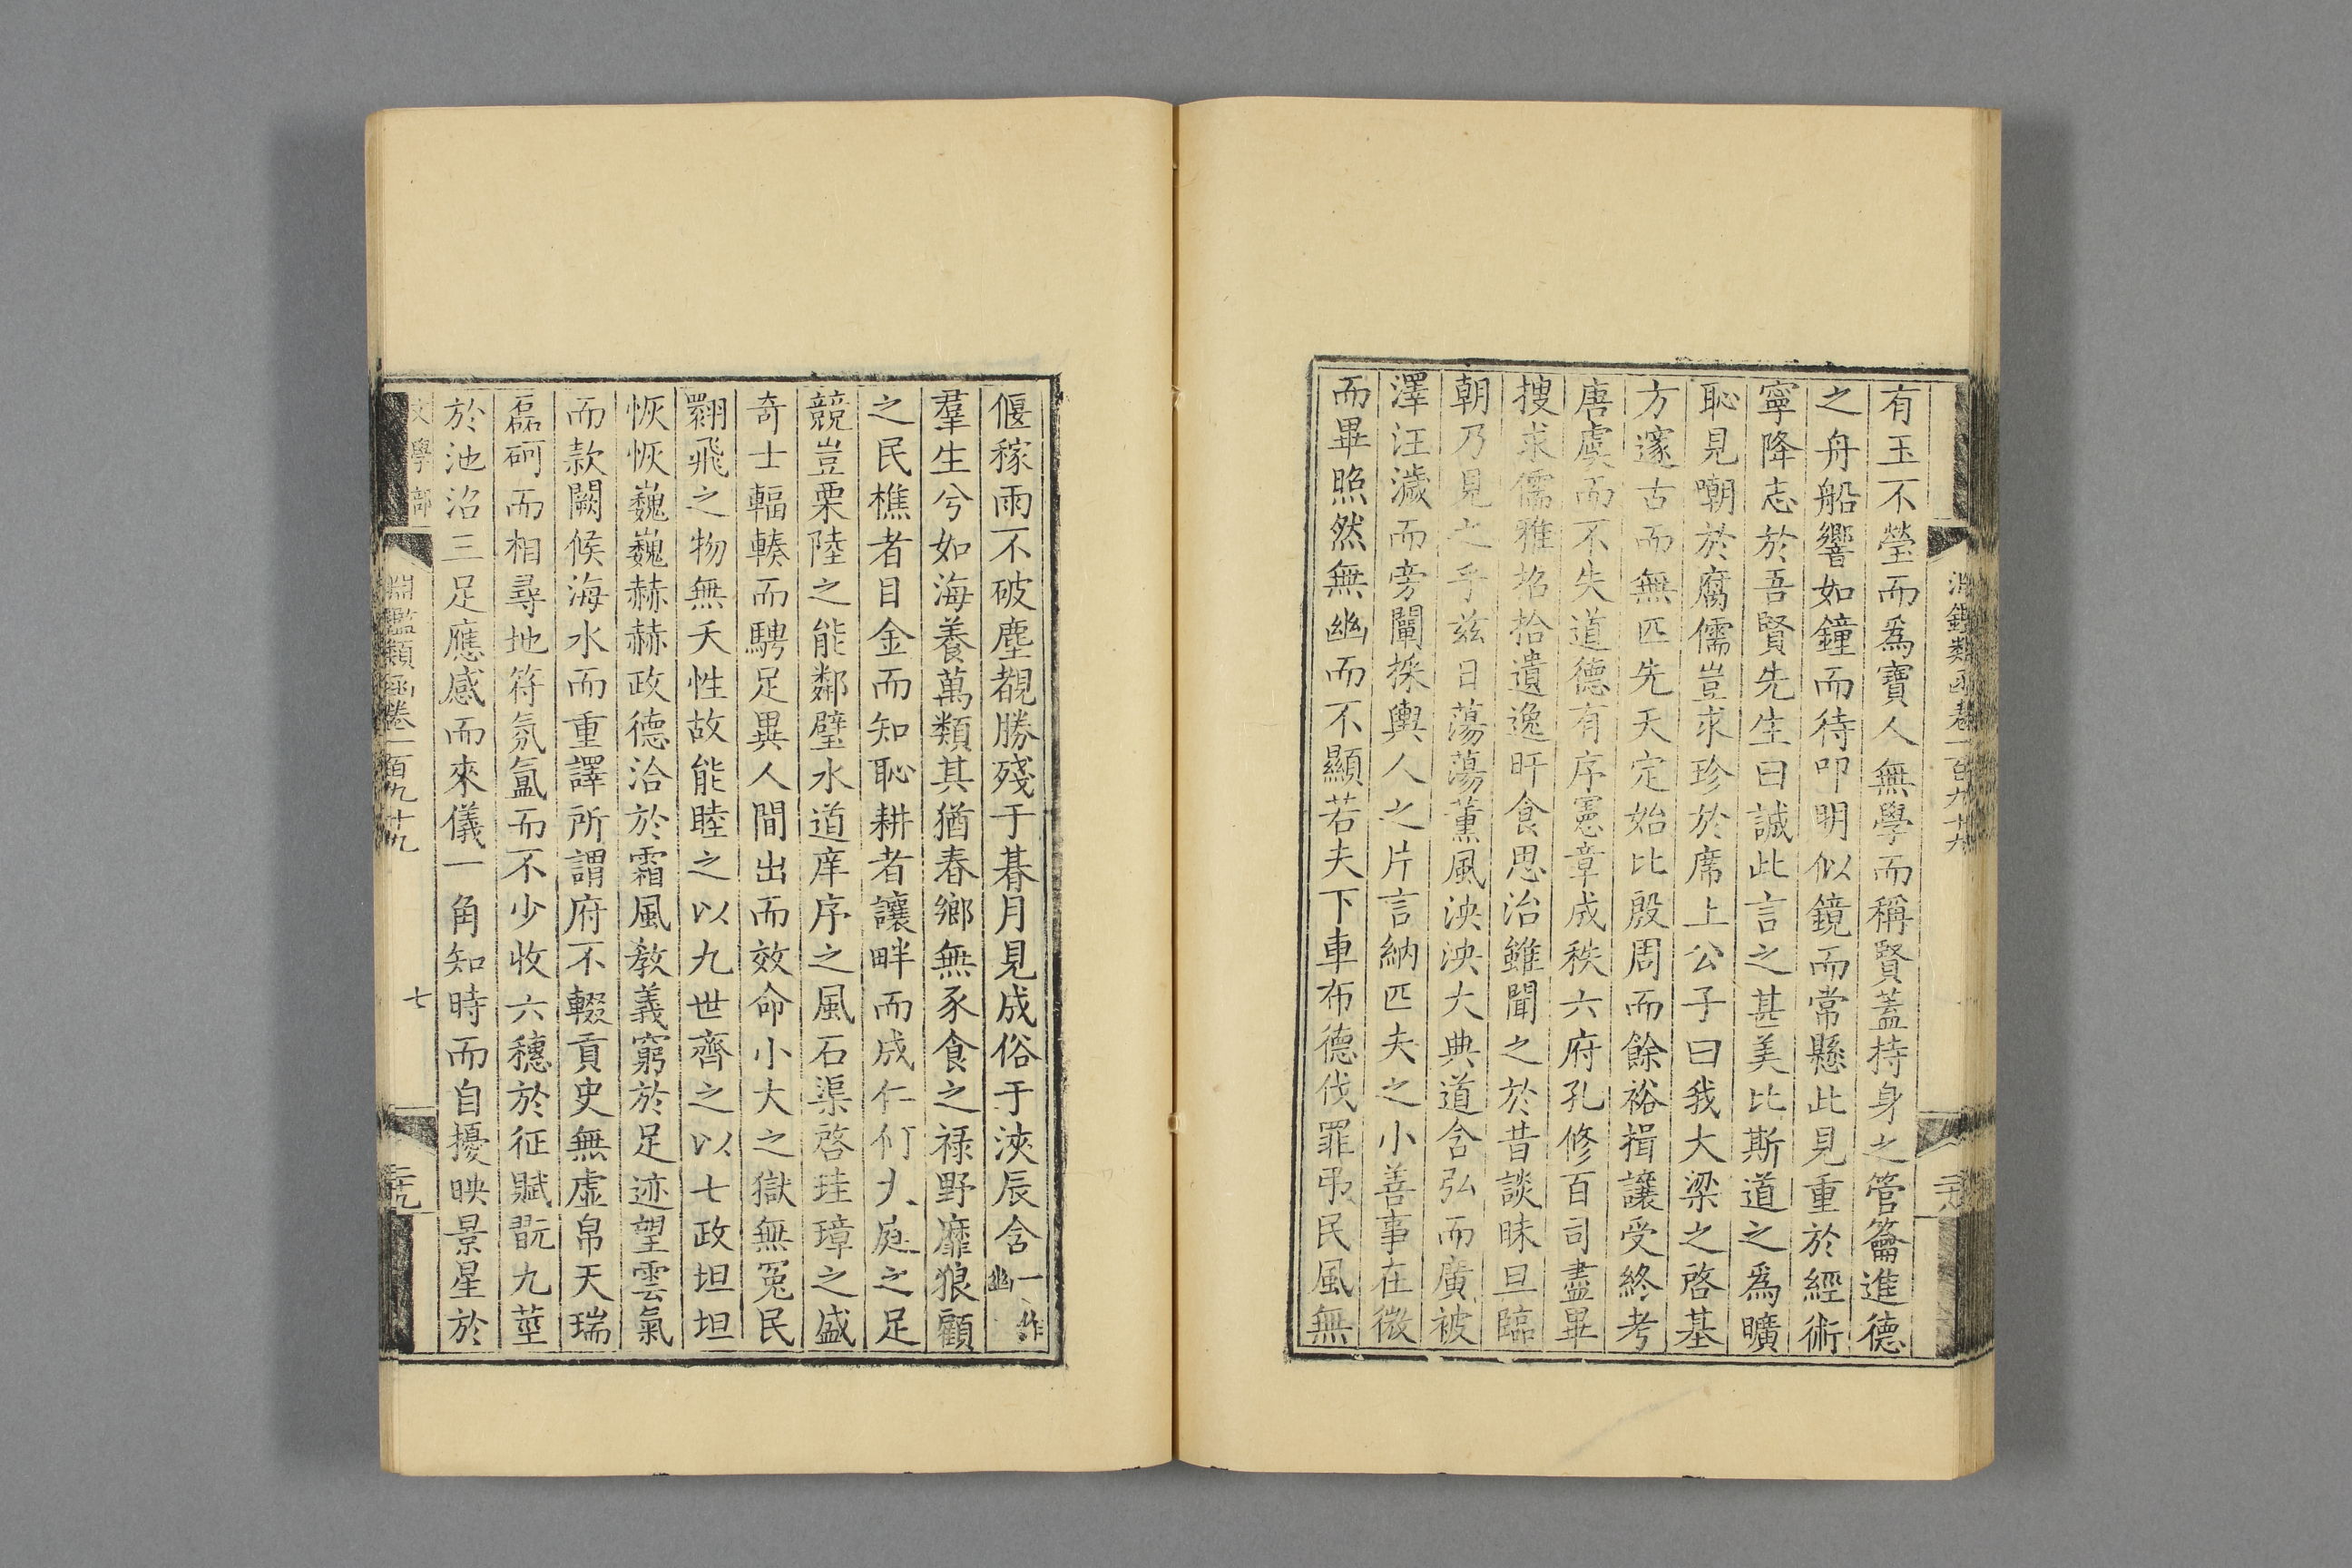 淵鑑類函卷一百九十九
有玉不瑩而爲寶人無學而稱賢蓋持身之管籥進德
之舟船響如鐘而待叩明似鏡而常懸此見重於經術
寧降志於吾賢先生曰誠此言之甚美比斯道之爲曠
恥見嘲於腐儒豈求珍於席上公子曰我大梁之啓基
方邃古而無匹先天定始比殷周而餘裕揖讓受終考
唐虞而不失道德有序憲章成秩六府孔修百司盡畢
搜求儒雅掐拾遺逸旰食思治雖聞之於昔談昧旦臨
朝乃見之乎兹日蕩蕩薰風泱泱大典道含弘而廣被
澤汪濊而旁闡採輿人之片言納匹夫之小善事在微
而畢照然無幽而不顯若夫下車布德伐罪弔民風無
偃稼雨不破塵覩勝殘于朞月見成俗于浹辰含一作幽
羣生兮如海養萬類其猶春鄉無豕食之禄野靡狼顧
之民樵者目金而知恥耕者讓畔而成仁何大庭之足
競豈栗陸之能鄰璧水道庠序之風石渠啓珪璋之盛
奇士輻輳而騁足異人間出而效命小大之獄無冤民
翾飛之物無夭性故能睦之以九世齊之以七政坦坦
恢恢巍巍赫赫政德洽於霜風教義窮於足迹望雲氣
而款闕候海水而重譯所謂府不輟貢史無虛帛天瑞
磊砢而相尋地符氛氳而不少收六穗於征賦翫九莖
於池沼三足應感而來儀一角知時而自擾映景星於
文學部
淵鑑類函卷一百九十九
七